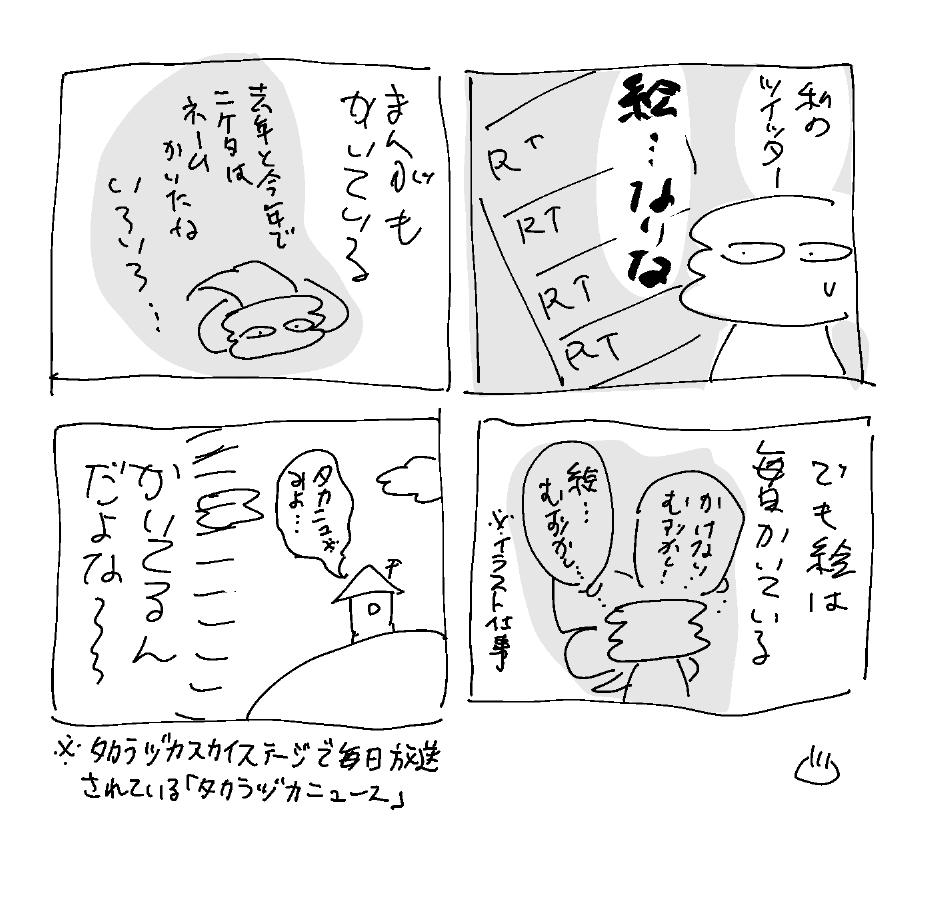 私の
ツイッター
絵…なりな
RT
RT
RT
RT
でも絵は
毎日かいている
かけない…
むずかし…
絵…
むずかし…
※イラスト仕事
まんがも
かいている
去年と今年で
ニケタは
ネーム
かいたね
いろいろ…
タカニュ※
みよ…
かいてるん
だよな〜〜
※タカラヅカスカイステージで毎日放送
されている「タカラヅカニュース」